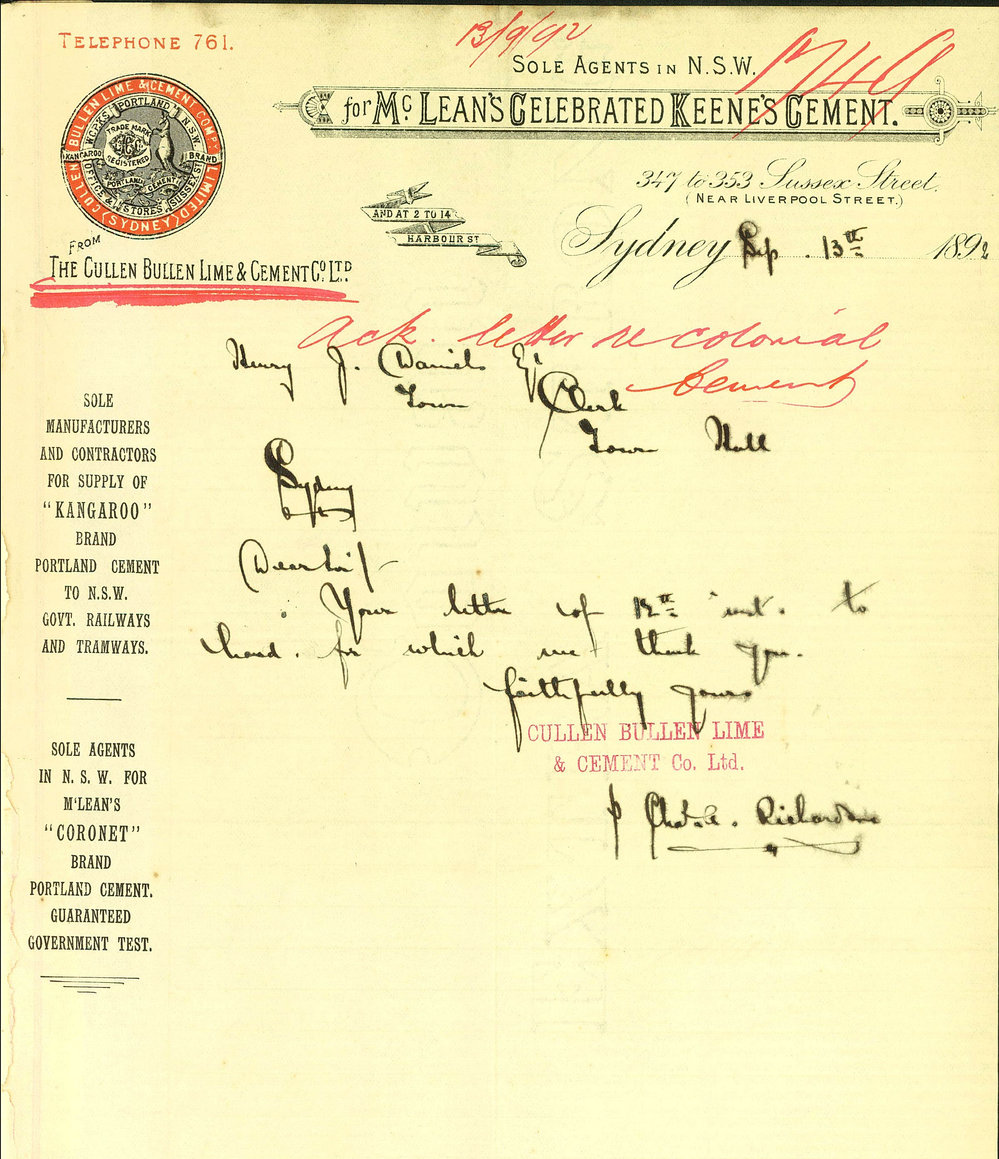 TELEPHONE 761.
13/9/92
SOLE AGENTS IN N.S.W.
1749
for Mc LEAN'S CELEBRATED KEENE'S CEMENT.
CULLEN BULLEN LIME & CEMENT COMPY LIMITED
(SYDNEY)
PORTLAND N.S.W.
WORKS
TRADE MARK
REGISTERED
KANGAROO BRAND
PORTLAND CEMENT
OFFICE & STORES SUSSEX ST
347 to 353 Sussex Street.
(NEAR LIVERPOOL STREET.)
AND AT 2 TO 14
HARBOUR ST
Sydney Sep. 13th 1892
FROM
THE CULLEN BULLEN LIME & CEMENT CO. LTD.
Ack. letter re colonial
Cement
Henry J. Daniels Esq
Town Clerk
Town Hall
Sydney
Dear Sir/-
Your letter of 12th inst. to
hand. for which we thank you.
faithfully yours
CULLEN BULLEN LIME
& CEMENT Co. Ltd.
p Chas. A. Richardson
SOLE
MANUFACTURERS
AND CONTRACTORS
FOR SUPPLY OF
"KANGAROO"
BRAND
PORTLAND CEMENT
TO N.S.W.
GOVT. RAILWAYS
AND TRAMWAYS.
SOLE AGENTS
IN N. S. W. FOR
M'LEAN'S
"CORONET"
BRAND
PORTLAND CEMENT.
GUARANTEED
GOVERNMENT TEST.